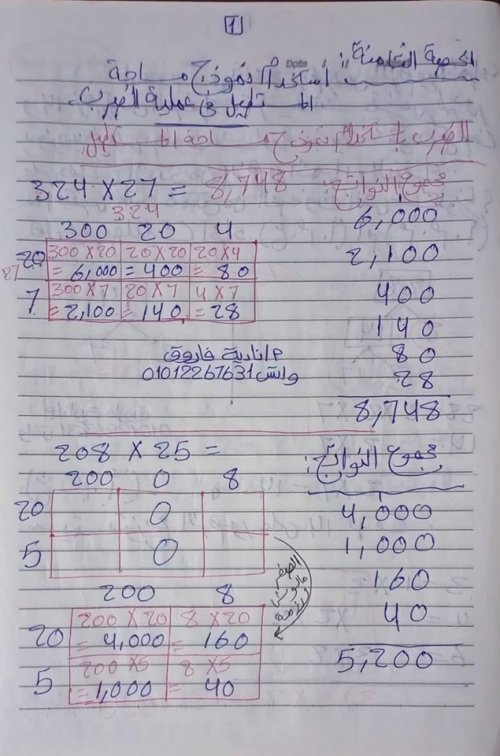 1
الحصة الثامنة: استخدام نموذج مساحة
المستطيل فى عملية الضرب
الضرب باستخدام نموذج مساحة المستطيل:
324 × 27 = 8,748
مجموع النواتج:
324
300 20 4
27
20 300×20 = 6,000 20×20 = 400 20×4 = 80
7 300×7 = 2,100 20×7 = 140 4×7 = 28
6,000
2,100
400
140
80
28
8,748
م/نادية فاروق
واتس 01012267631
208 × 25 =
مجموع النواتج:
200 0 8
20 0
5 0
200 8
20 200×20 = 4,000 8×20 = 160
5 200×5 = 1,000 8×5 = 40
4,000
1,000
160
40
5,200